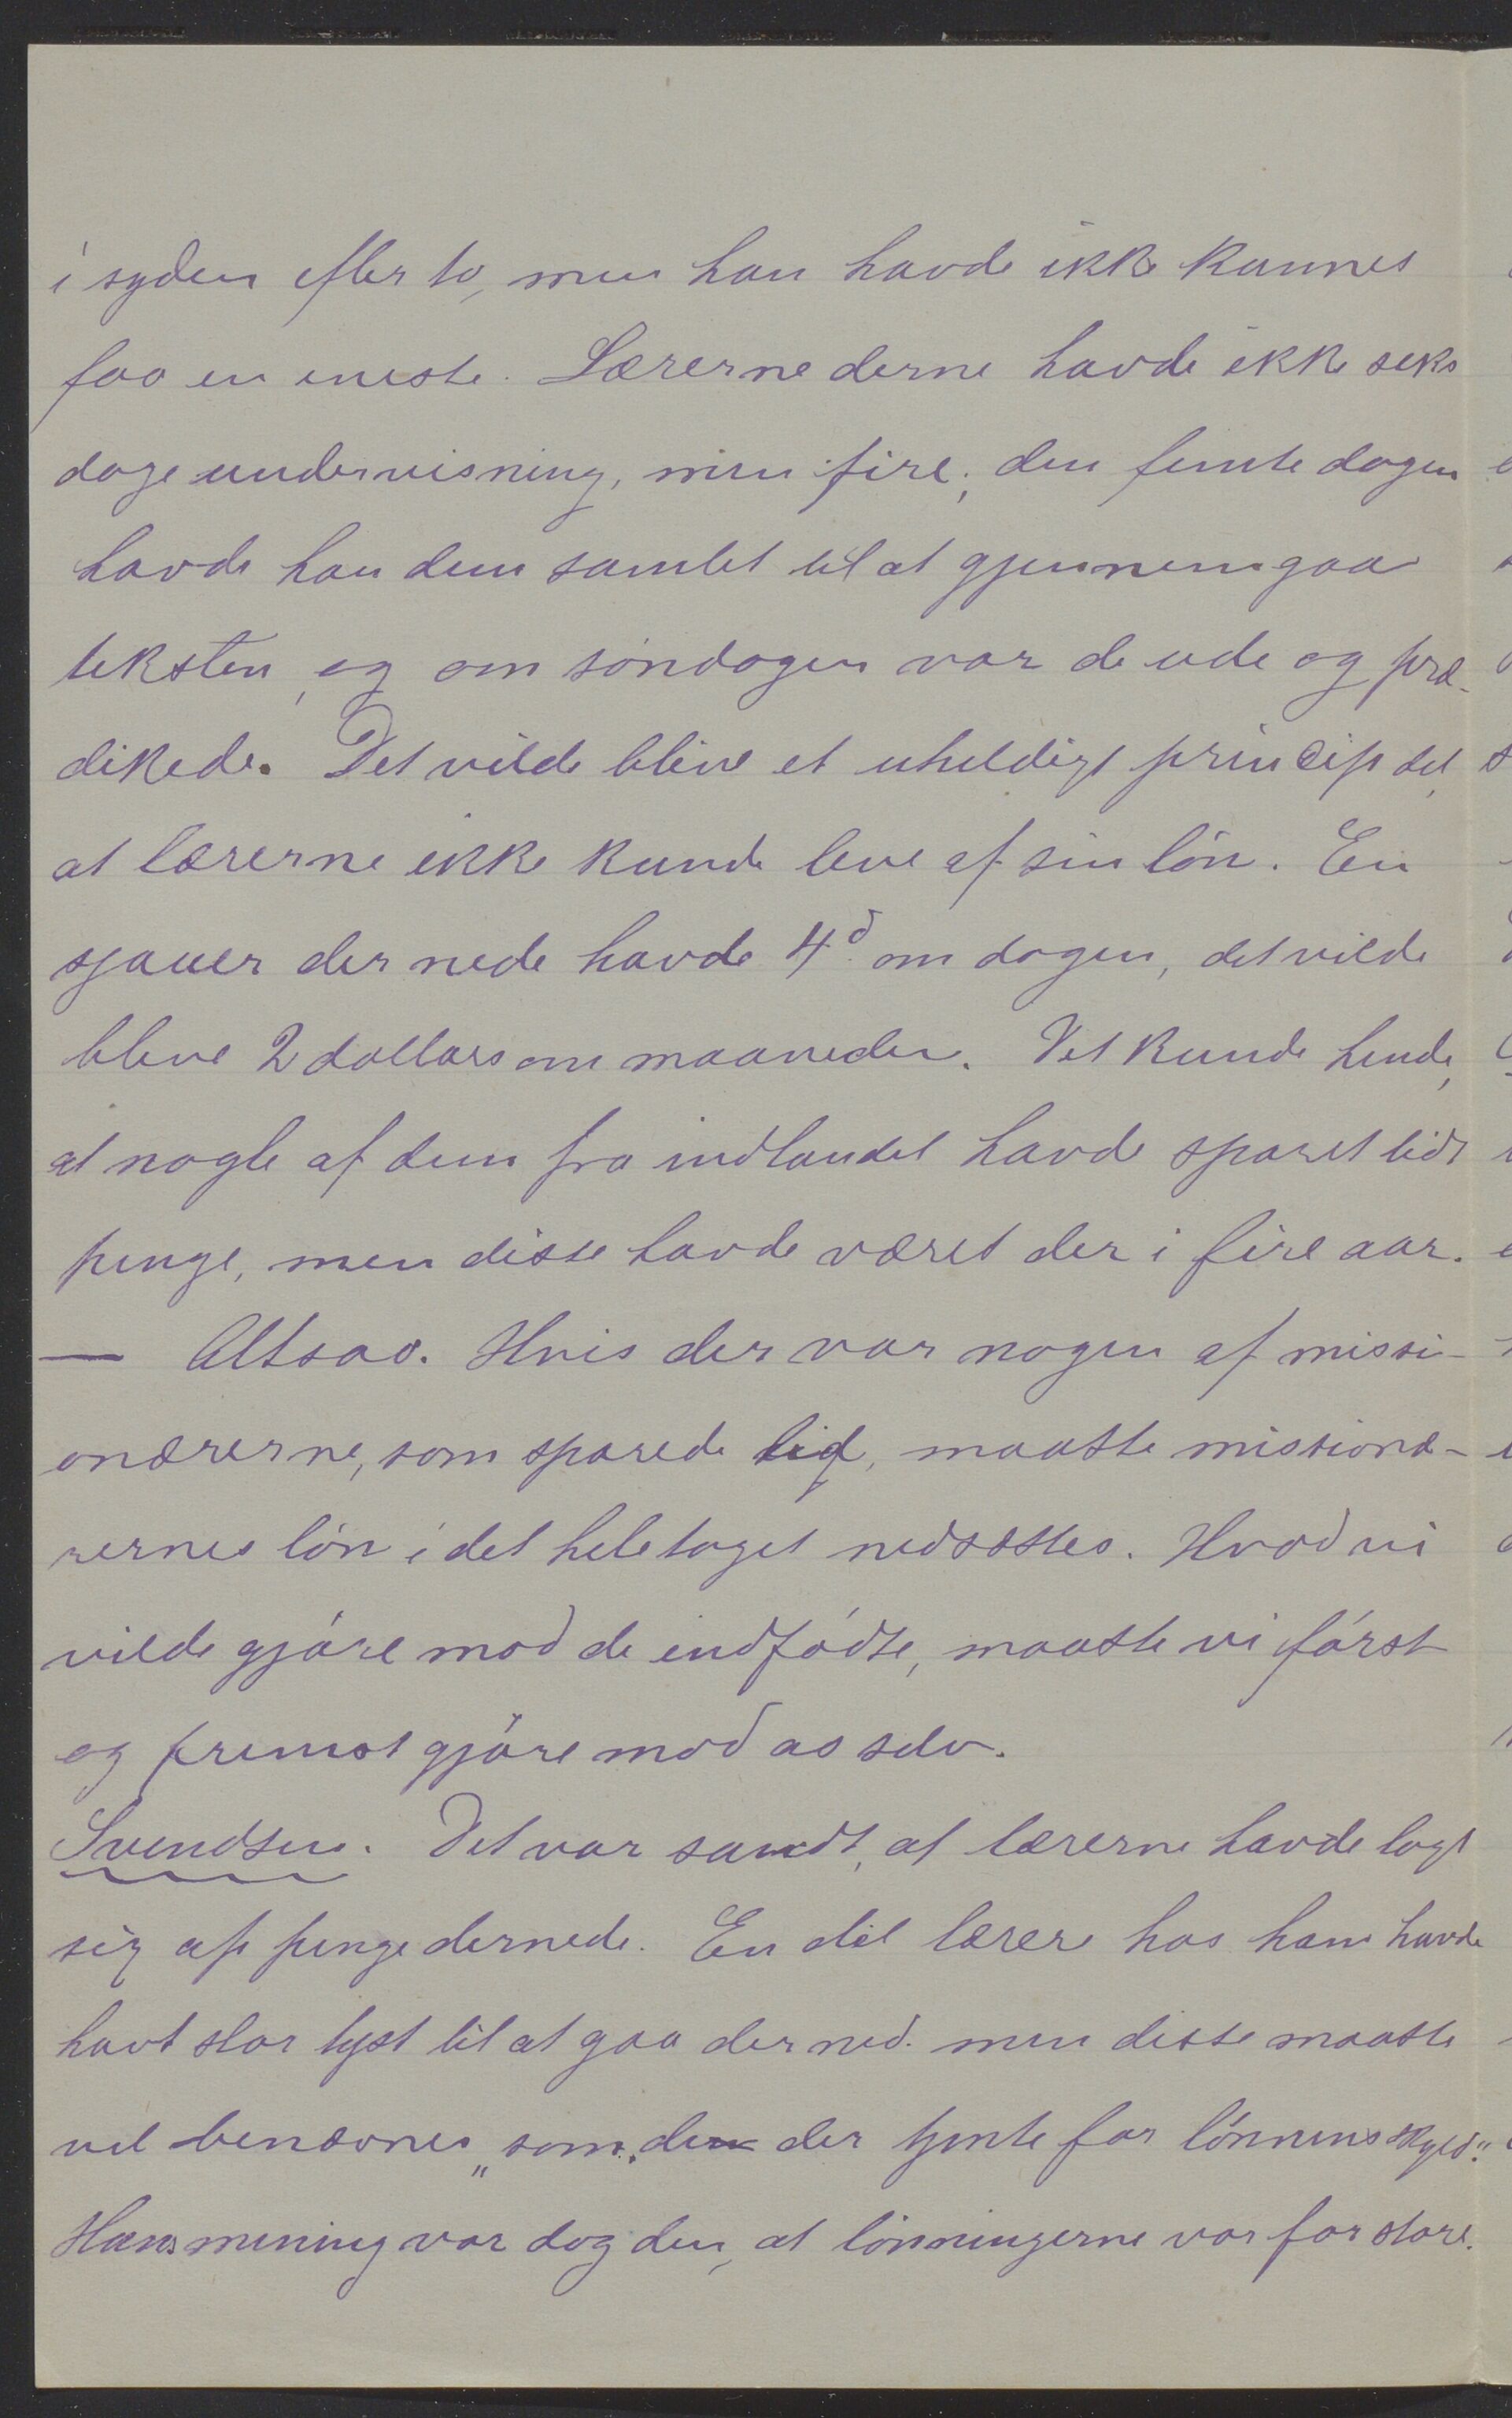 i syden efter to, men han havde ikke kunnet
faa en eneste. Lærerne derne havde ikke seks
dage undervisning, men fire; den femte dagen
havde han dem samlet til at gjennemgaa
teksten, og om söndagen var de ude og præ-
dikede. Det vilde blive et uheldigt princip det,
at lærerne ikke kunde leve af sin lön. En
sjauer der nede havde 4d om dagen, det vilde
blive 2 dollars om maaneden. Det kunde hende,
at nogle af dem fra indlandet havde sparet lidt
penge, men disse havde været der i fire aar.
— Altsaa. Hvis der var nogen af missi-
onærerne, som sparede lidt, maatte missionæ-
rernes lön i det hele taget nedsættes. Hvad vi
vilde gjöre mod de indfödte, maatte vi först
og fremst gjöre mod os selv.
Svendsen. Det var sandt, at lærerne havde lagt
sig op penge dernede. En del lærere hos ham havde
havt stor lyst til at gaa der ned. men disse maatte
vel benævnes „som „den der tjente for lönnens skyld".
Hans mening var dog den, at lönningerne var for store.